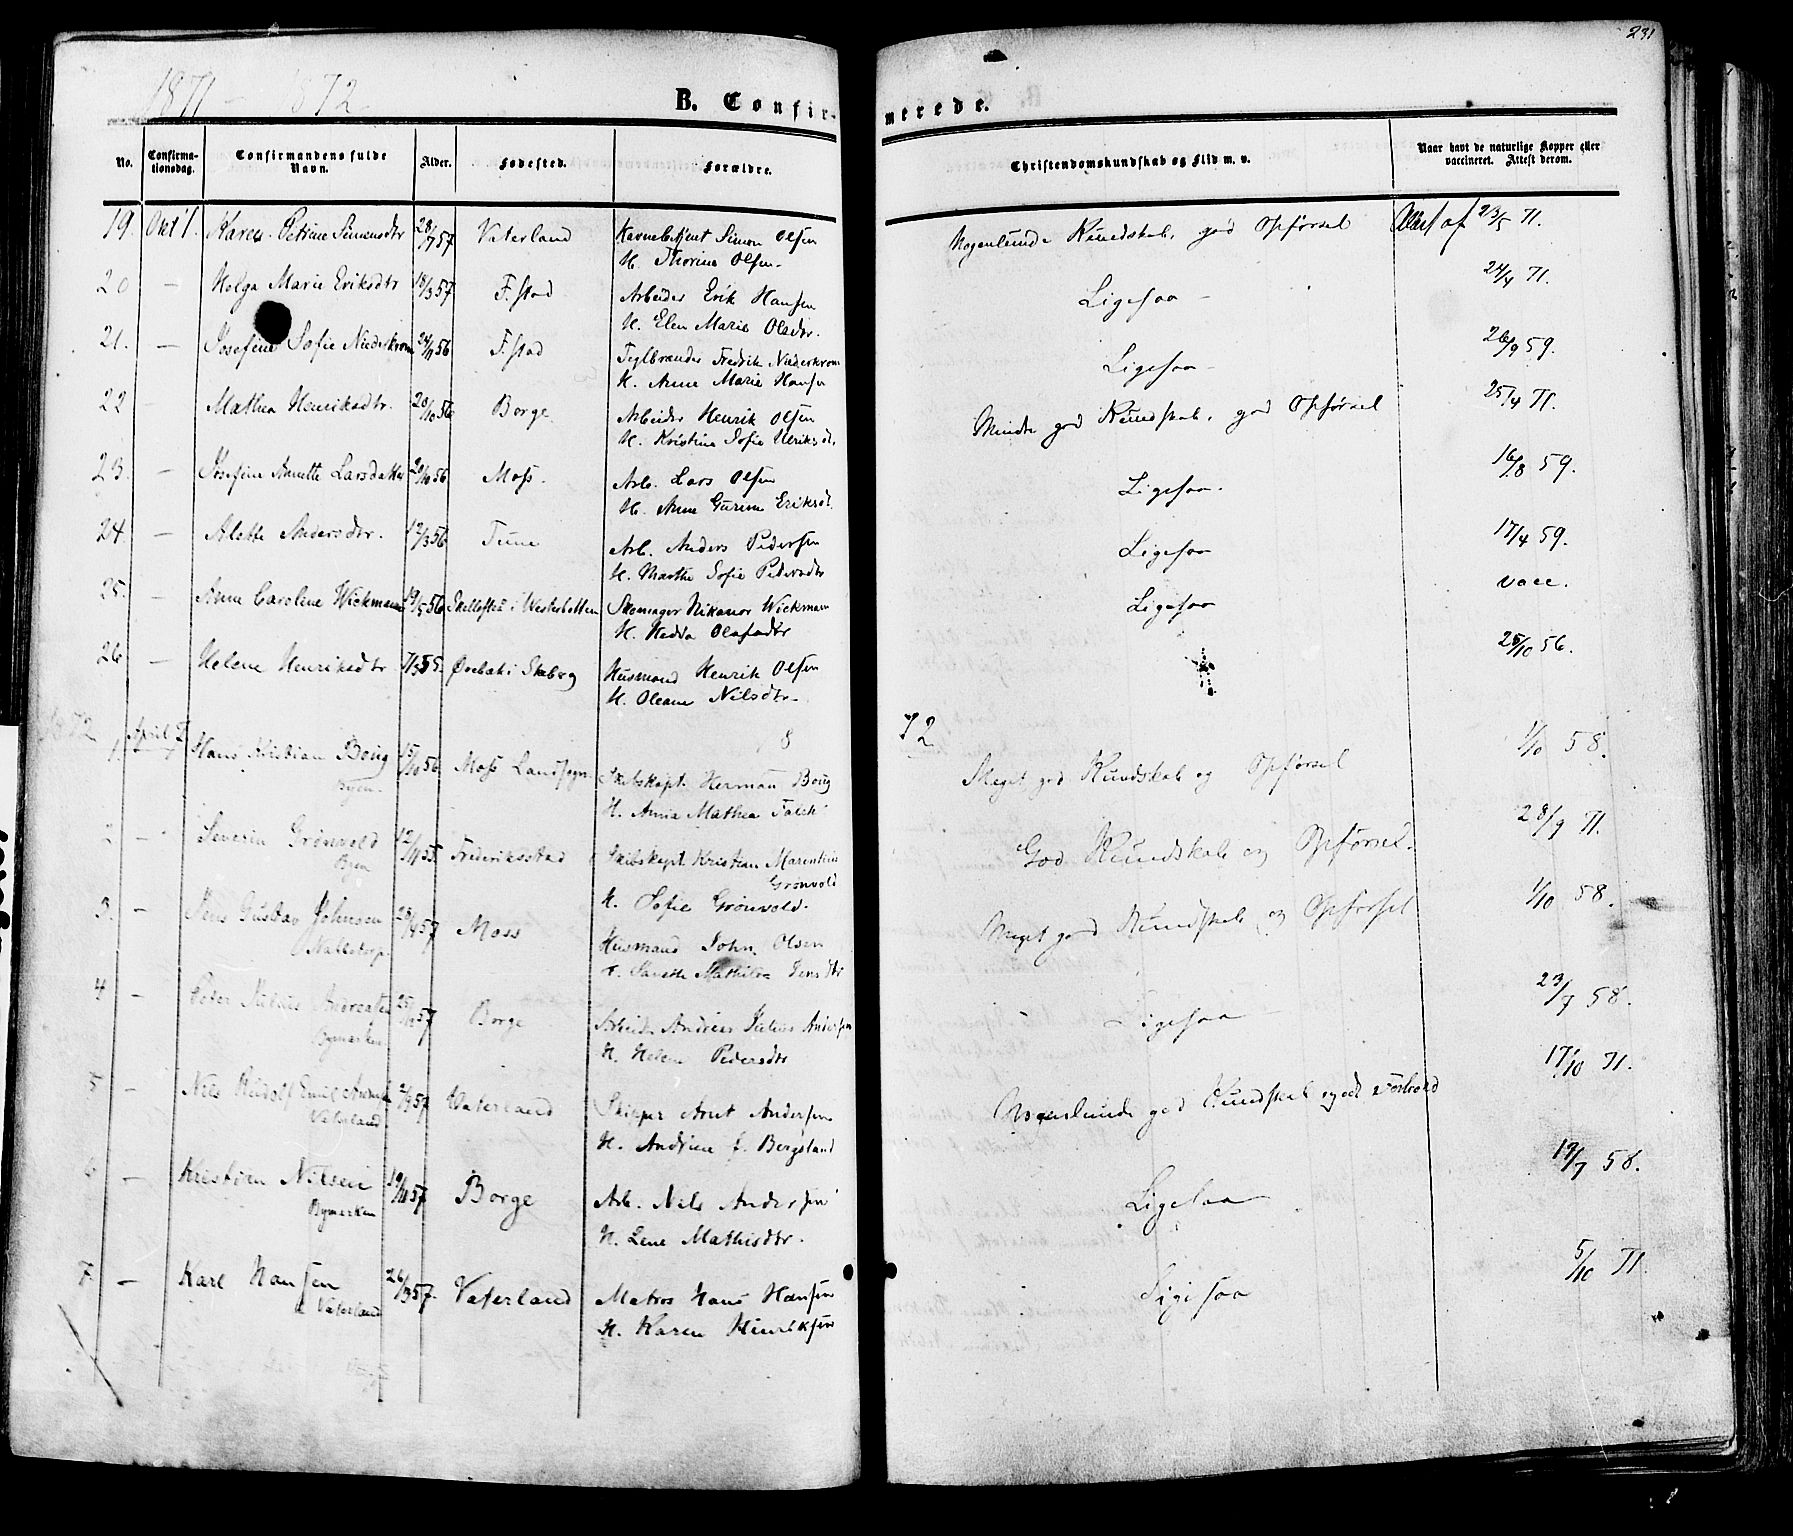 231
1871 - 1872
B. Confirmerede.
No. Confirmationsdag. Confirmandens fulde Navn. Alder. Fødested. Forældre. Christendomskundskab og Flid m. v. Naar havt de naturlige Kopper eller vaccineret. Attest derom.
19. Okt 1. Karen Petrine Simensdtr 28/7 57 Vaterland Simon Olsen Nogenlunde Kundskab, god Opførsel 23/5 71.
H. Thorine Olsen.
20 — Helga Marie Eriksdtr 18/3 57 F.stad Arbeider Erik Hansen Ligesaa — 24/4 71.
H. Elen Marie Olsdtr.
21. — Josefine Sofie Niederkrom 24/11 56 F.stad Teglbrænder Fredrik Niederkrom Ligesaa — 26/9 59.
H. Anne Marie Hansen
22 — Mathea Henriksdtr. 20/10 56 Borge Arbeider Henrik Olsen Mindre god Kundskab, god Opførsel 25/4 71.
H. Kristine Sofie
23. — Josefine Annette Larsdatter 20/10 56 Moss. Arb. Lars Olsen Ligesaa. 16/8 59.
H. Anne Eriksdt.
24. — Alette Andersdtr. 12/3 56 Tune Arb. Anders Pedersen Ligesaa 17/4 59.
H. Marthe Sofie Pedersdtr
25. — Anne Caroline Wickmann 19/5 56 i Westerbotten Skomager Nikanor Wickmann Ligesaa vacc.
H. Hedda Olafsdtr
26 — Helene Henriksdtr 7/3 55. i Skeberg Husmand Henrik Olsen 25/10 56.
H. Oleane Nilsdtr.
1872 72
1. April 7 Hans Kristian Boug 15/10 56 Moss Landsogn Skibskapt. Herman Boug Meget god Kundskab og Opførsel 1/10 58.
Byen. H. Anna Mathea Falck
2 — Severin Grønvold 12/11 55. Frederiksstad Skibskapt Kristian Marentius God Kundskab og Opførsel. 28/9 71.
Byen Grønvold
H. Sofie Grønvold.
3. — Jens Gustav Johnsen 23/4 57 Moss Husmand John Olsen Meget god Kundskab og Opførsel 1/10 58.
Mathilde Jensdtr
4 — Peter Julius Andreasen 25/12 57 Borge Arbeid. Andreas Julius Andersen Ligesaa — 23/7 58.
Bymarken H. Helene Pedersdtr
5 — Nils Rudolf Emil 57 Vaterland Skipper Arnt Andersen Nogenlunde god Kundskab 17/10 71.
Vaterland H. Andrine f. Bergsland
6 — Kristian Nilsen 19/11 57 Borge Arb. Nils Andersen Ligesaa 19/7 58.
Bymarken H. Lene Mathisdtr.
7 — Karl Hansen 26/3 57. Vaterland Matros Hans Hansen Ligesaa 5/10 71
Vaterland H. Karen Henriksen